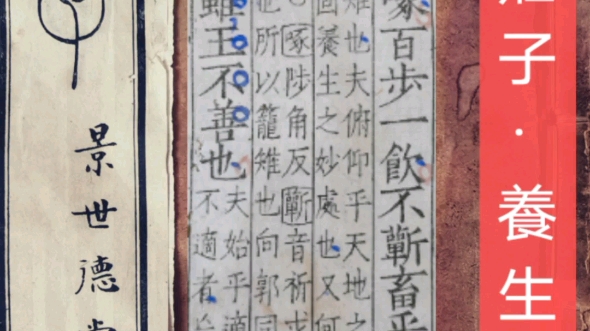 子·養生
啄百步一飲不蘄畜乎
雉也夫俯仰乎天地之
養生之妙處也又何
啄陟角反蘄音祈求
所以籠雉也向郭同
雖王不善也夫始乎適
不適者
景世德堂